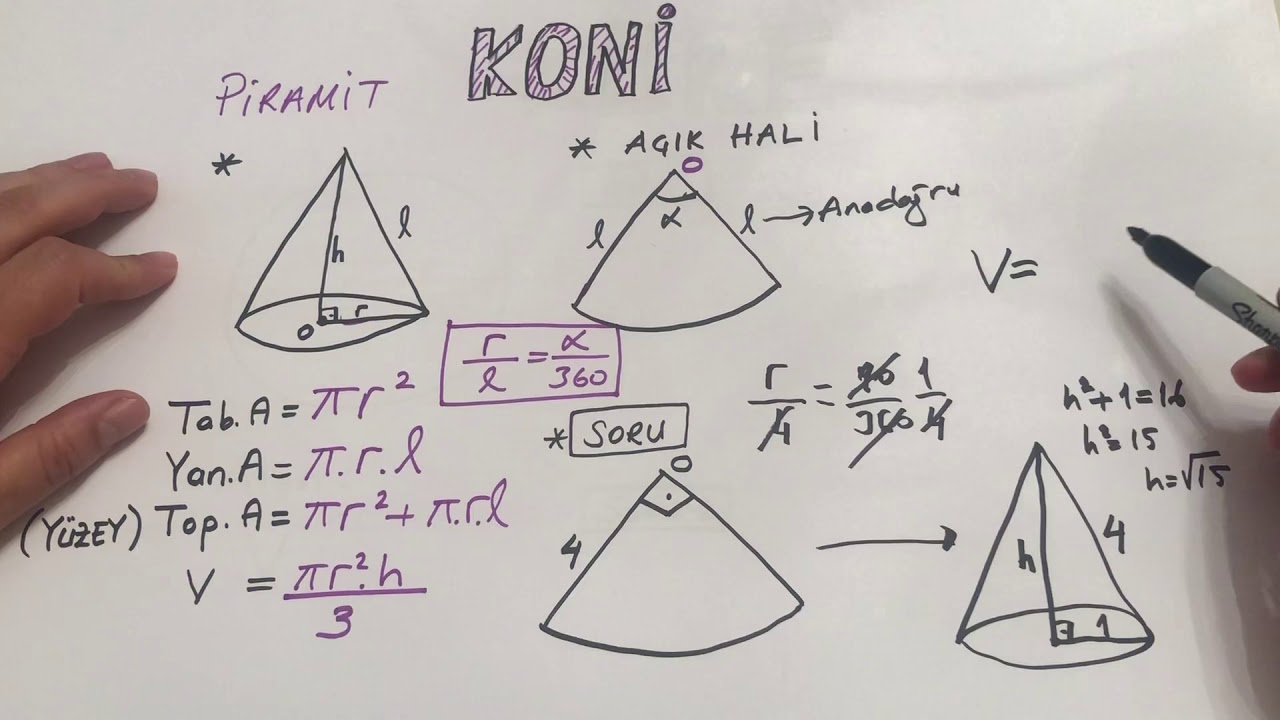 KONİ
PİRAMİT
* AÇIK HALİ
O
α
l
l → Anadoğru
h
l
r
O
V=
r/l = α/360
Tab.A = πr²
Yan.A = π.r.l
(YÜZEY) Top.A = πr² + π.r.l
V = πr².h/3
* SORU
r/4 = 90/360 1/4
h²+1=16
h²=15
h=√15
O
4
h
4
1
Sharp